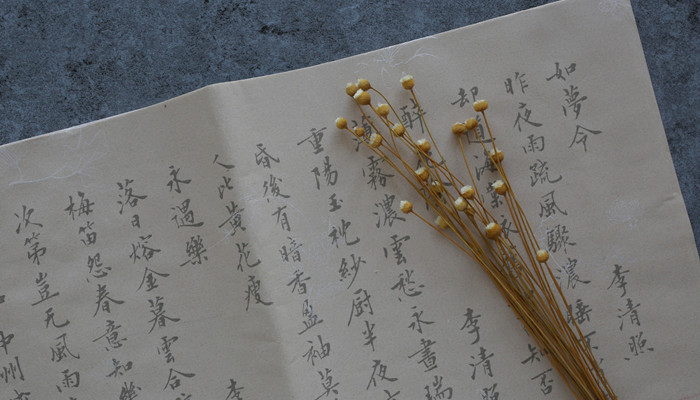 如夢令 李清照
昨夜雨疏風驟濃睡不
却道海棠依 知否
醉 李清照
薄霧濃雲愁永晝瑞
重陽玉枕紗厨半夜
昏後有暗香盈袖莫
人比黃花瘦
永遇樂 李
落日熔金暮雲合
梅笛怨春意知幾
次第豈无風雨
中州